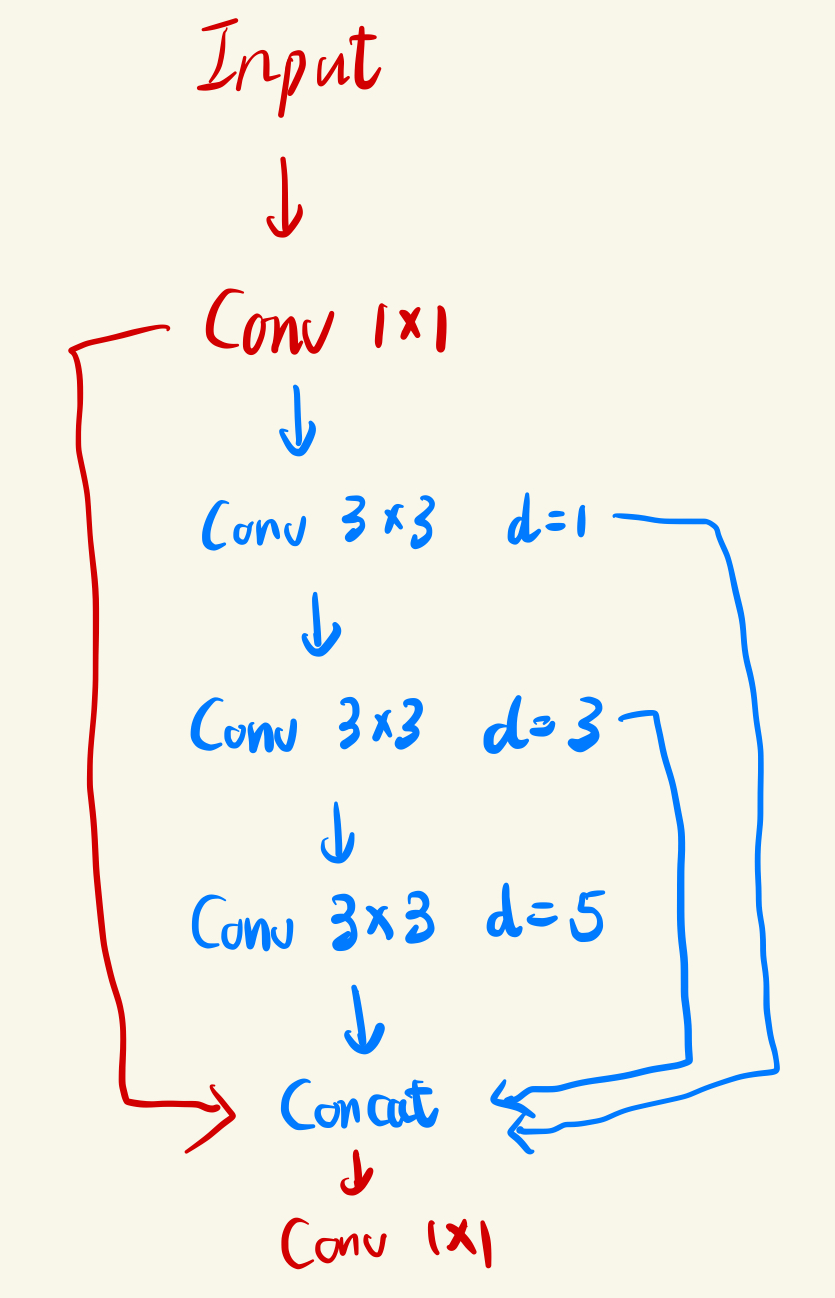 Input
Conv 1x1
Conv 3x3 d=1
Conv 3x3 d=3
Conv 3x3 d=5
Concat
Conv 1x1